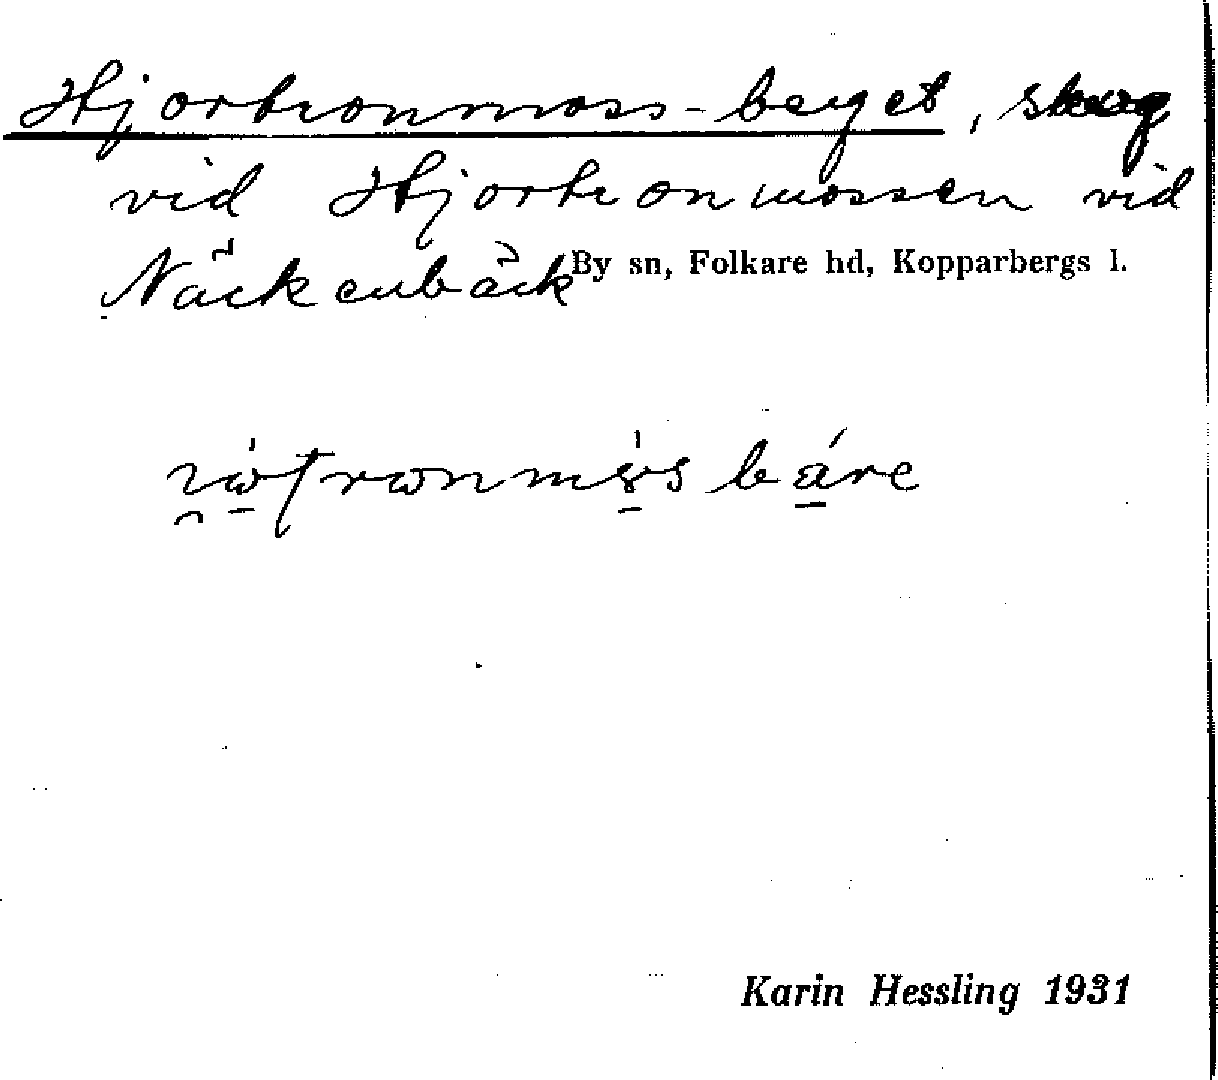 Hjortronmoss-berget, skog
vid Hjortronmossen vid
Näckenbäck
By sn, Folkare hd, Kopparbergs l.
Karin Hessling 1931